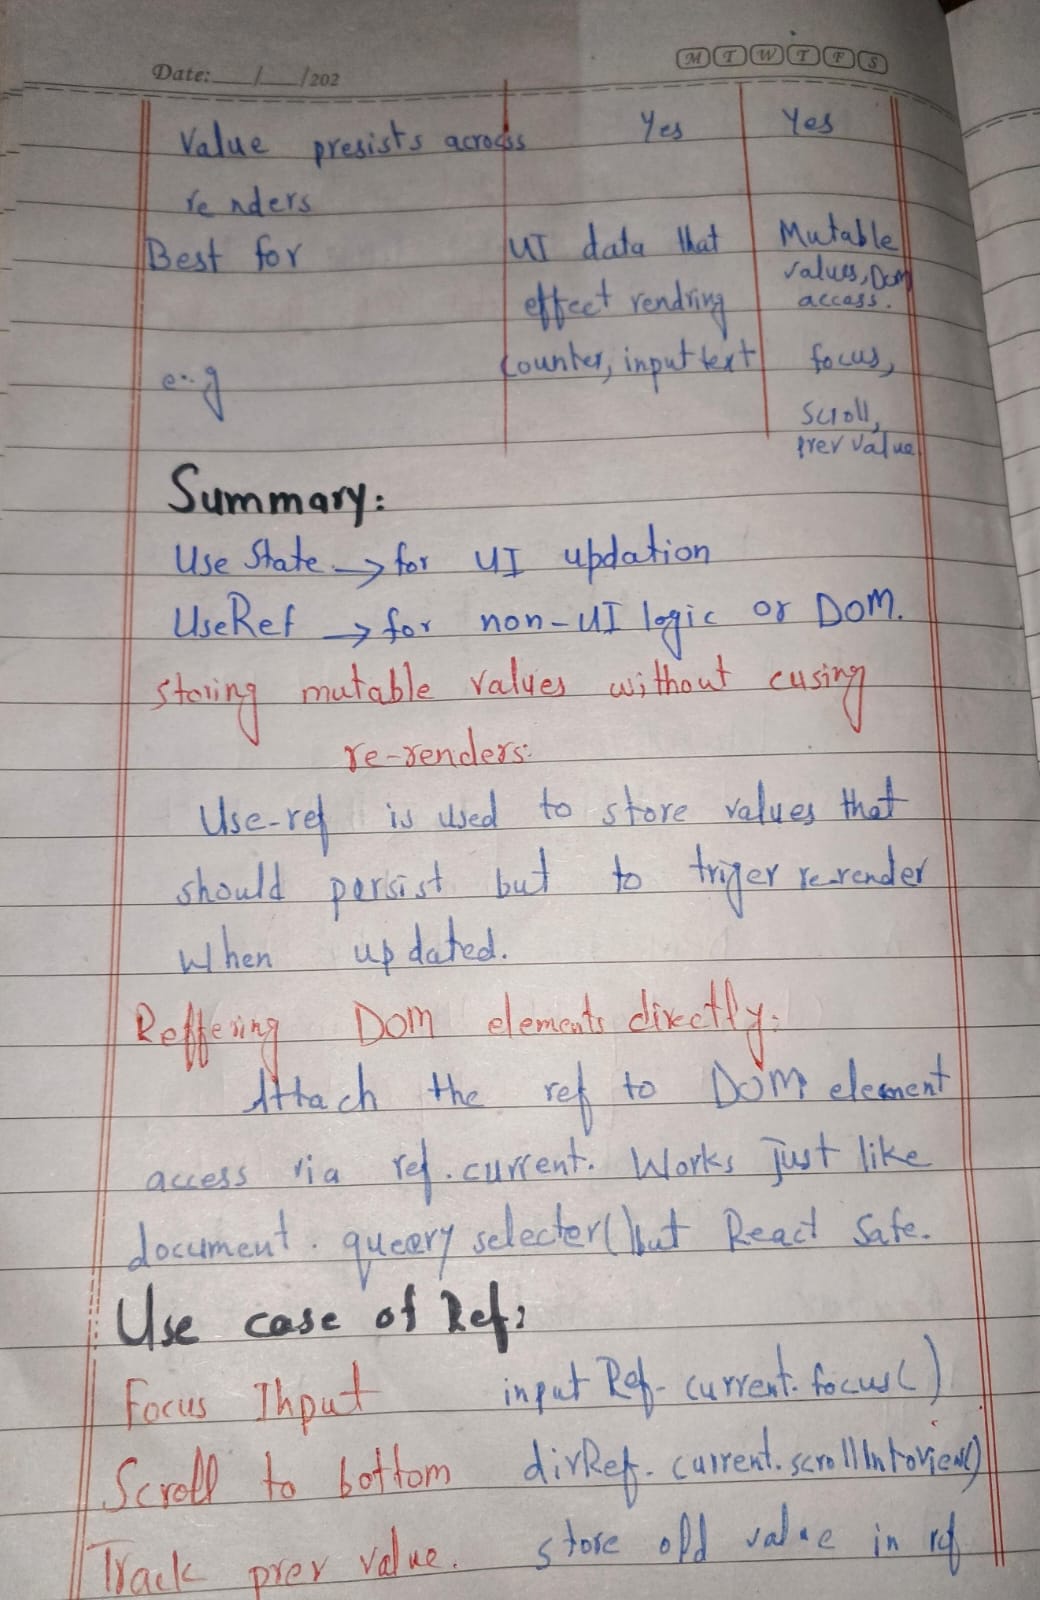 Date: __/__/202 M T W T F S
Value presists across Yes Yes
renders
Best for UI data that Mutable
values, Dom
effect rendring access.
e.g counter, input text focus,
Scroll,
prev value
Summary:
Use State → for UI updation
UseRef → for non-UI logic or DOM.
storing mutable values without cusing
re-renders:
Use-ref is used to store values that
should persist but to triger re-render
when updated.
Reffering DOM elements directly:
Attach the ref to DOM element
access via ref.current. Works just like
document.queery selecter() but React Safe.
Use case of Ref:
Focus Input input Ref- current.focus()
Scroll to bottom divRef. current.scrollIntoView()
Track prev value. store old value in ref